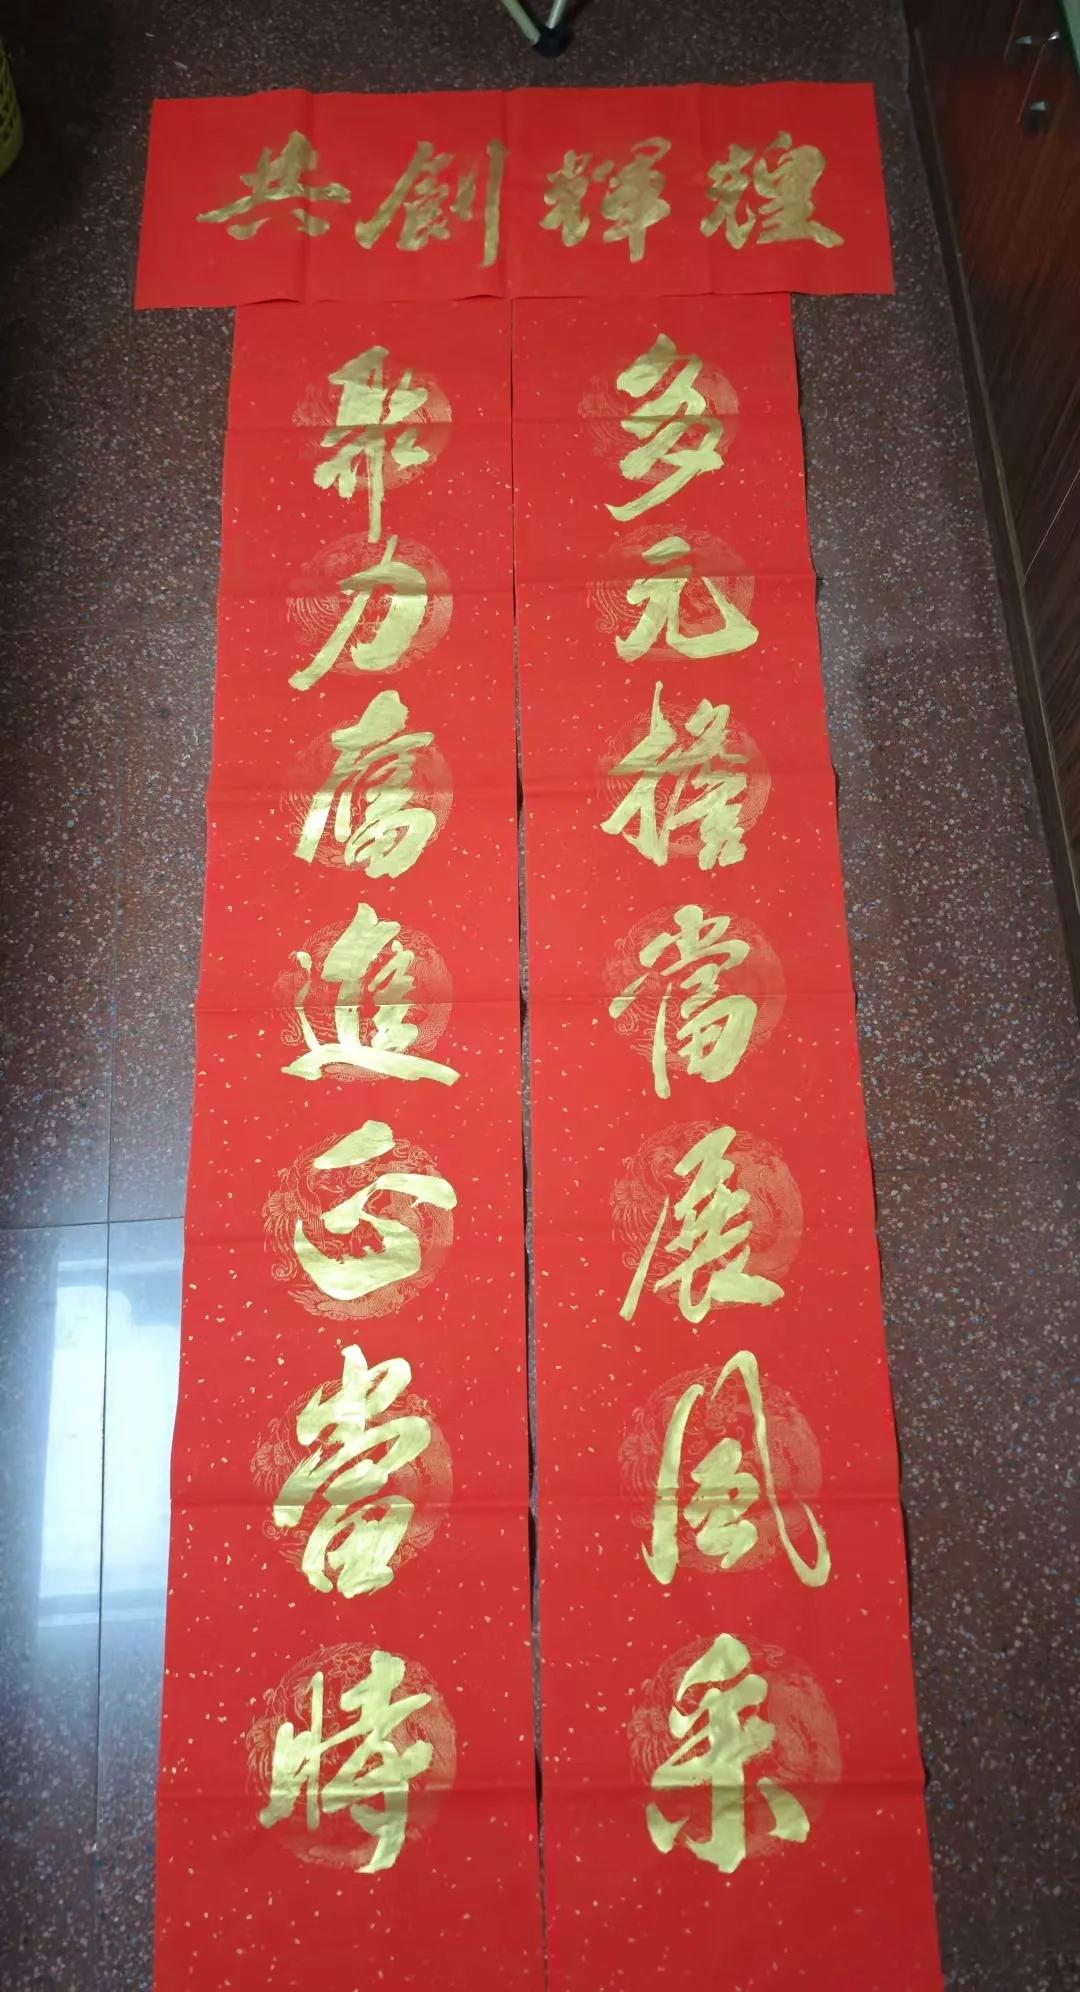 共創輝煌
聚力奮進正當時
多元擔當展風采